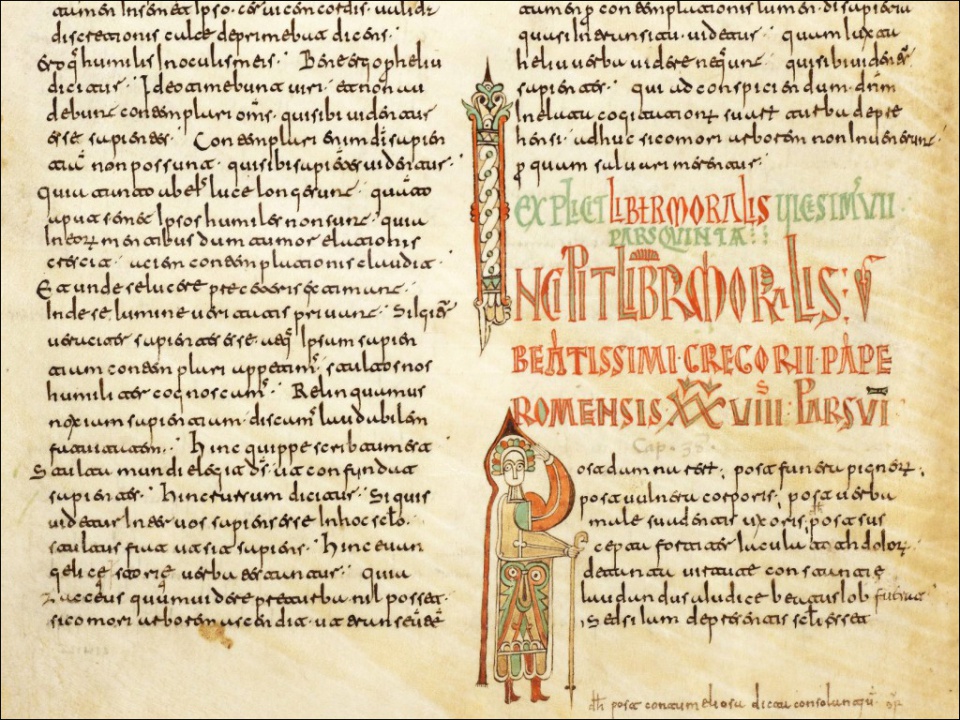 discretionis culce deprimebat dicens.
humilis in oculis meis. Bene ergo heliu
dicitur. Ideo timebunt viri. et non au
debunt contemplari oms. qui sibi videntur
esse sapientes. Contemplari enim di sapien
tia non possunt. qui sibi sapientes videntur.
quia tanto ab ei's luce longe sunt. quanto
aput semet ipsos humiles non sunt. quia
in eorum mentibus dum tumor elationis
crescit. aciem contemplationis claudit.
Et unde se lucere pre ceteris estimant.
Inde se lumine veritatis privant. Si igitur
veraciter sapientes esse. atque ipsam sapien
tiam contemplari appetimus. stultos nos
humiliter cognoscamus. Relinquamus
noxiam sapientiam. discamus laudabilem
fatuitatem. hinc quippe scribtum est
Stulta mundi elegit ds. ut confundat
sapientes. hinc rursum dicitur. Si quis
videtur inter vos sapiens esse in hoc sclo.
stultus fiat ut sit sapiens. hinc euan
gelice storie verba testantur. quia
zacceus quum videre pre turba nil posset.
sicomori arborem ascendit. ut transeuntem
tamen per contemplationis lumen. di sapientia
quasi in transitu. videtur. quam iuxta
heliu verba videre nequeunt. qui sibi videntur
sapientes. qui ad conspiciendum. dnm
in elata cogitationum suarum turba depre
hensi. adhuc sicomori arborem non invenerunt.
per quam salvari mereantur.
EXPLICIT LIBER MORALIS VICESIMVII
PARS QUINTA
INCIPIT LIBR MORALIS:
BEATISSIMI GREGORII PAPE
ROMENSIS XXVIII PARS VI
Cap. 35
post damna rerum. post funera pignorum.
post vulnera corporis. post verba
male suadentis uxoris. post sus
cepta fortiter iacula a dolorum.
de tanta virtute constantie
laudandus a iudice beatus iob fuerat
Sed si iam de presenti sclo esset
dh post contumeliosa dicta consolantium